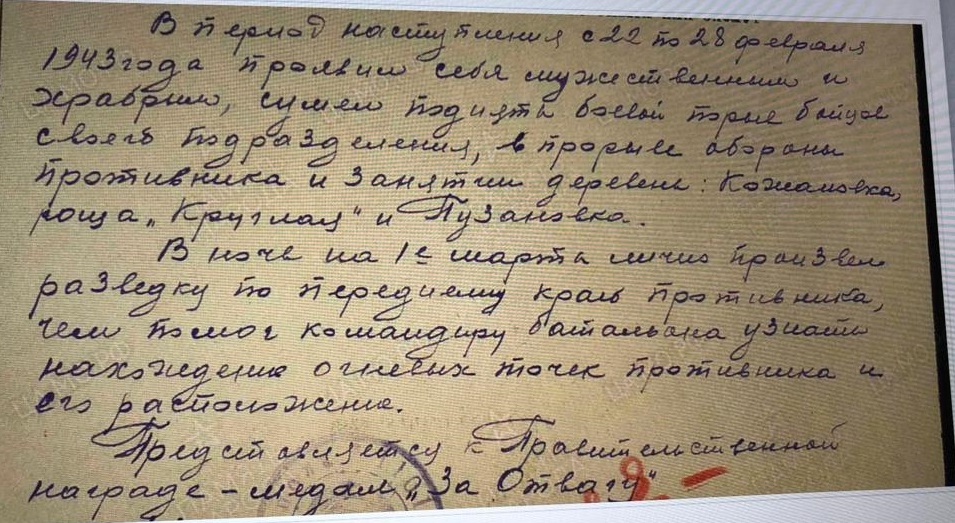 В период наступления с 22 по 28 февраля
1943 года проявил себя мужественным и
храбрым, сумел поднять боевой порыв бойцов
своего подразделения, в прорыве обороны
противника и занятии деревень: Кожановка,
роща „Круглая" и Пузановка.
В ночь на 1е марта лично произвел
разведку по переднему краю противника,
чем помог командиру батальона узнать
нахождение огневых точек противника и
его расположение.
Представляется к Правительственной
награде - медали „За Отвагу"